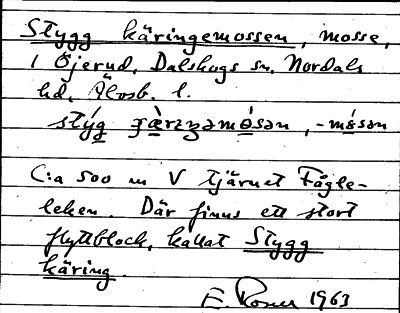 Stygg käringemossen, mosse,
i Öjerud, Dalskogs sn. Nordals
hd. Älvsb. l.
stýg çæ̀rıŋəmɵ̀sən, -mɵ́sən
C:a 500 m V tjärnet Fågle-
leken. Där finns ett stort
flyttblock, kallat Stygg
käring.
E. Rosell 1963